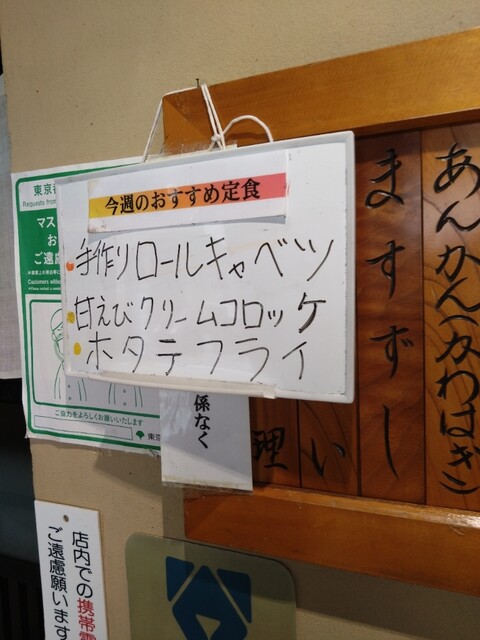 今週のおすすめ定食
手作りロールキャベツ
甘えびクリームコロッケ
ホタテフライ
東京都
Requests from
マス
お
ご遠慮
Customers without
ご協力をよろしくお願いいたします
東京
係なく
理
い
ますずし
あんかん(かわはぎ)
店内での携帯電
ご遠慮願います